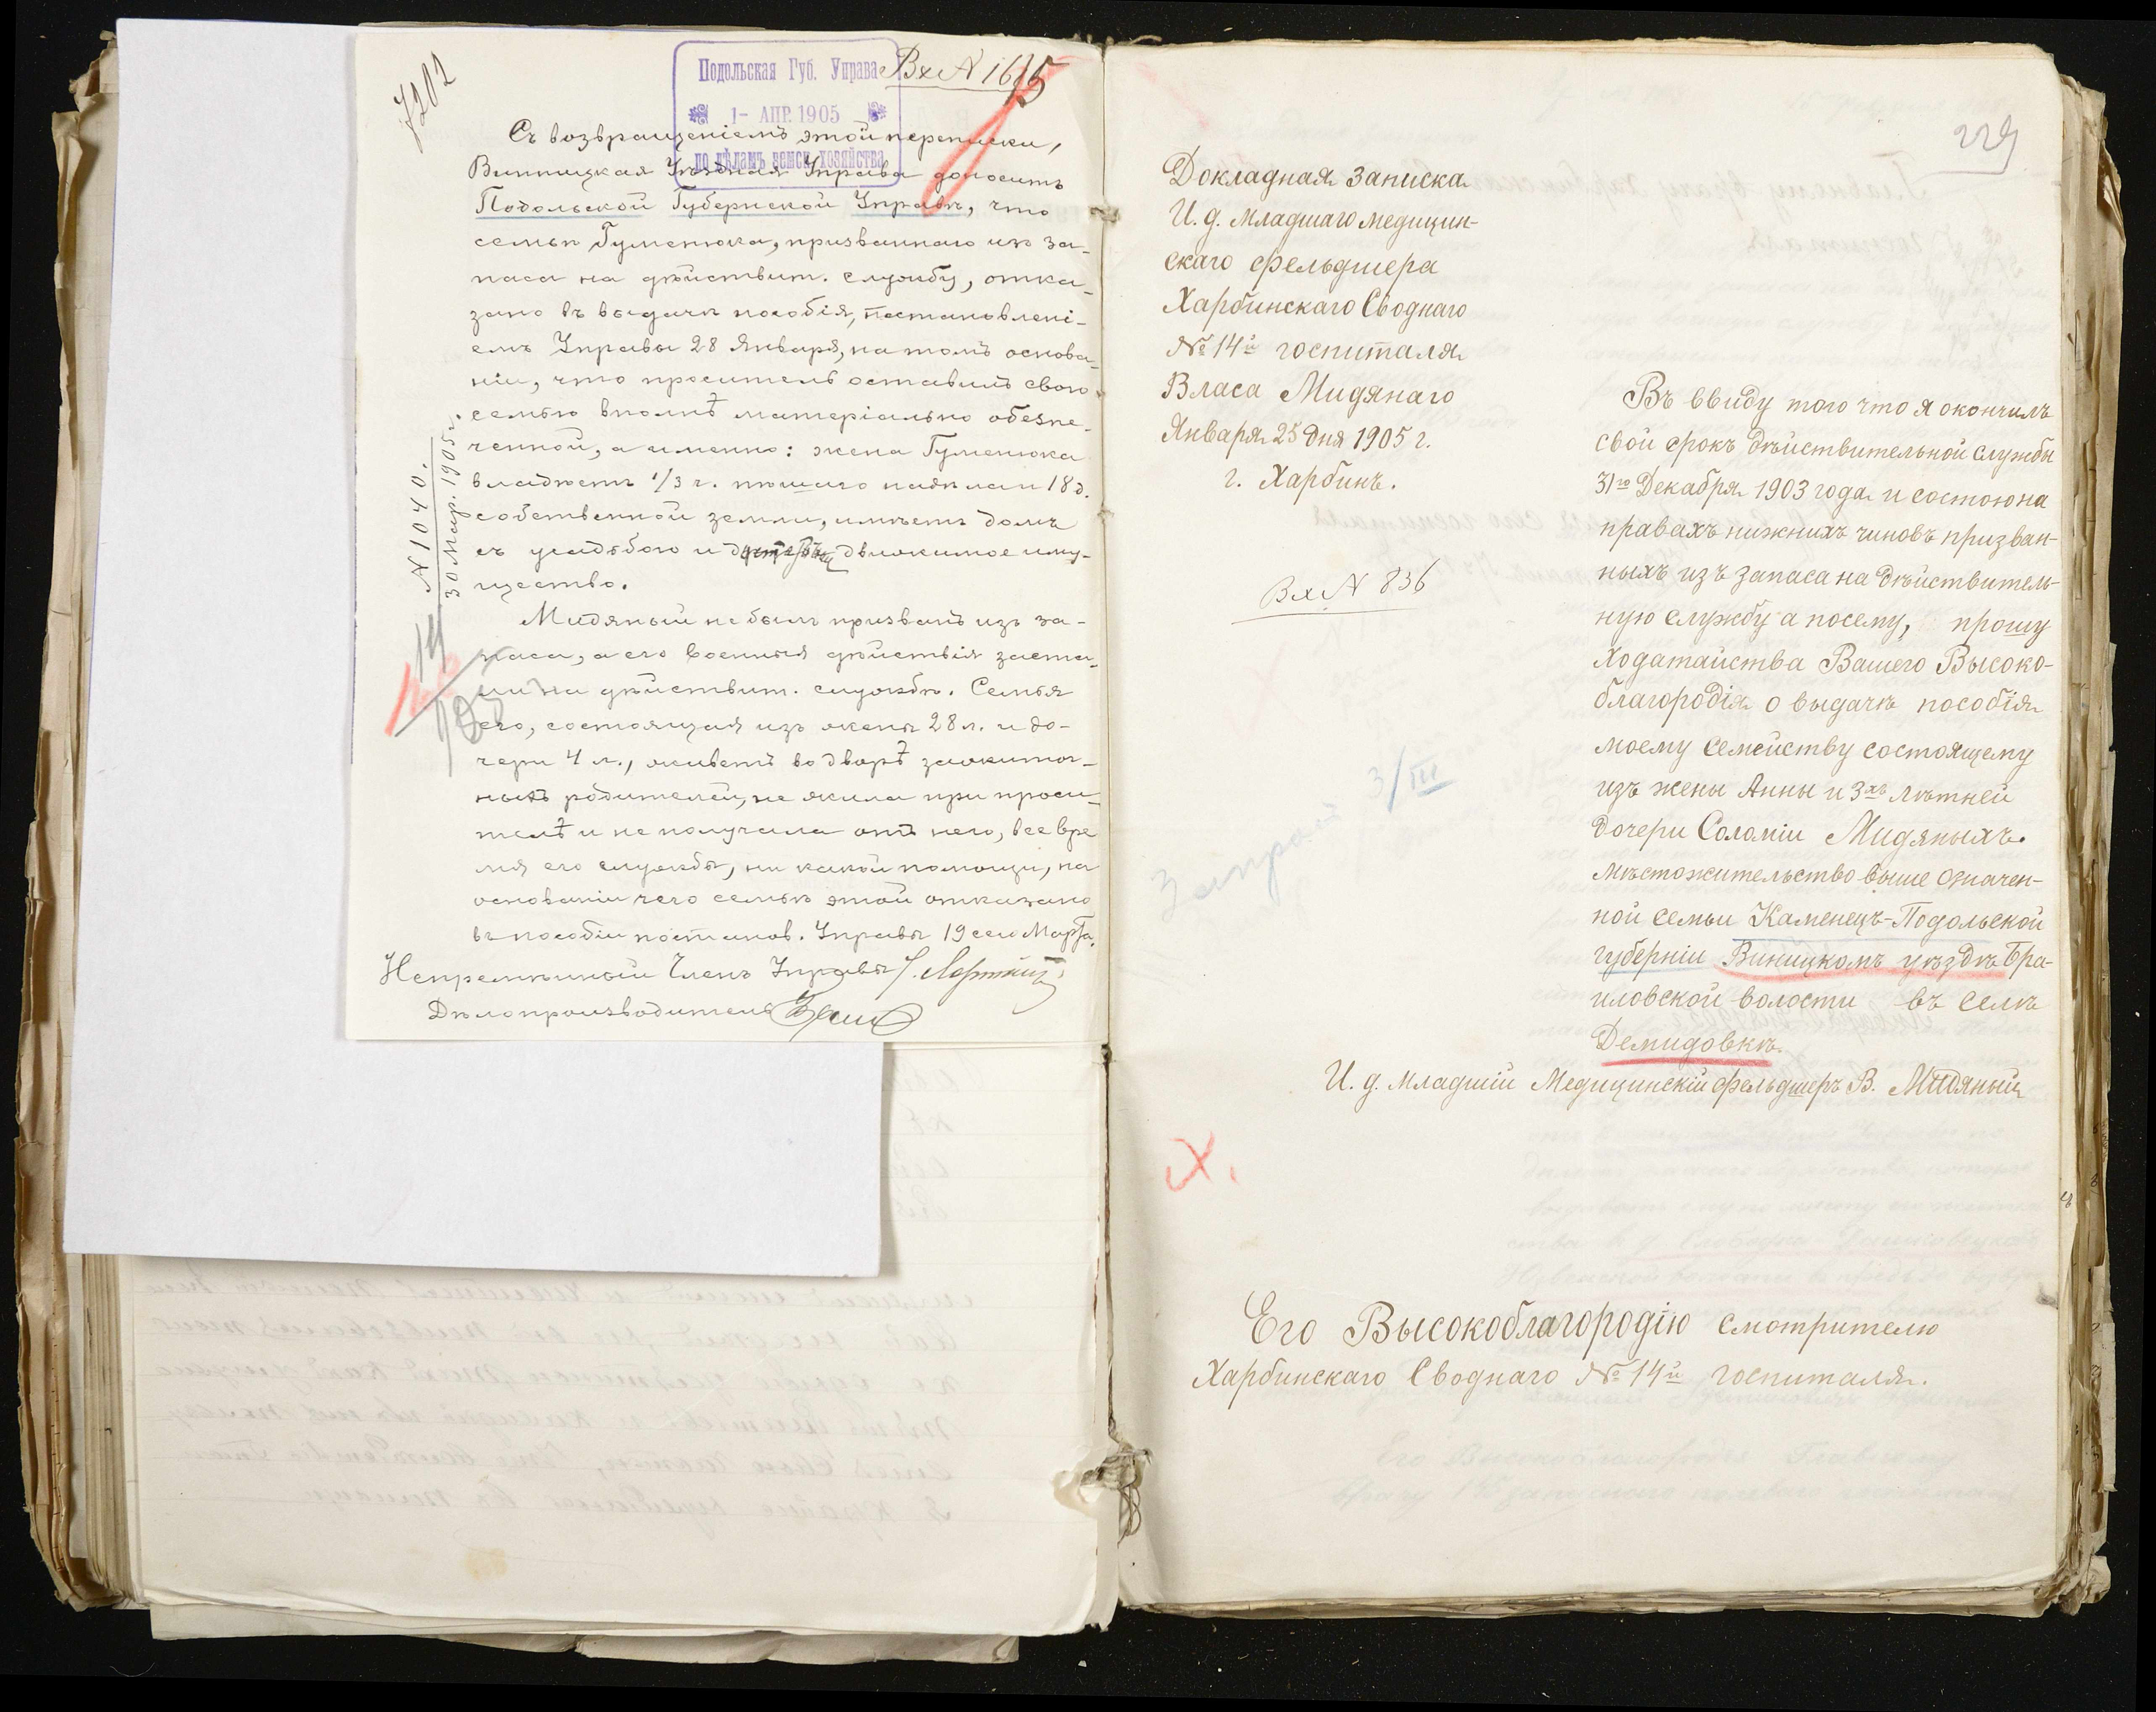 7202
Подольская Губ. Управа
1- АПР. 1905
по дѣламъ земск. хозяйства
Вх N 1615
Съ возвращеніемъ этой переписки,
Винницкая Уѣздная Управа доноситъ
Подольской Губернской Управѣ, что
семьѣ Гуменюка, призваннаго изъ за-
паса на дѣйствит. службу, отка-
зано въ выдачѣ пособія, постановлені-
емъ Управы 28 Января, на томъ основа-
ніи, что проситель оставилъ свою
семью вполнѣ матеріально обезпе-
ченной, а именно: жена Гуменюка
владѣетъ 1/3 ч. пѣшаго надѣла и 18 д.
собственной земли, имѣетъ домъ
съ усадьбою и движимое иму-
щество.
Мидяный не былъ призванъ изъ за-
паса, а его военныя дѣйствія заста-
ли на дѣйствит. службѣ. Семья
его, состоящая изъ жены 28 л. и до-
чери 4 л., живетъ во дворѣ зажиточ-
ныхъ родителей, не жила при проси-
телѣ и не получала отъ него, все вре
мя его службы, ни какой помощи, на
основаніи чего семьѣ этой отказано
въ пособіи постанов. Управы 19 сего Марта.
Непремѣнный Членъ Управы
Дѣлопроизводитель
N 1040.
30 Мар. 1905 г.
229
Докладная Записка
И. д. младшаго медицин-
скаго фельдшера
Харбинскаго Своднаго
№ 14й госпиталя
Власа Мидянаго
Января 25 дня 1905 г.
г. Харбинъ.
Вх N 836
3/III
Въ ввиду того что я окончилъ
свой срокъ дѣйствительной службы
31го Декабря 1903 года и состою на
правахъ нижнихъ чиновъ призван-
ныхъ изъ запаса на дѣйствитель-
ную службу а посему, прошу
Ходатайства Вашего Высоко-
благородія о выдачѣ пособія
моему семейству состоящему
изъ жены Анны и 3хъ лѣтней
дочери Соломіи Мидяныхъ.
Мѣстожительство выше означен-
ной семьи Каменецъ-Подольской
губерніи Виницкомъ уѣздѣ Бра-
иловской волости въ селѣ
Демидовкѣ.
И. д. младшій Медицинскій фельдшеръ В. Мидяный
Х.
Его Высокоблагородію смотрителю
Харбинскаго Своднаго № 14й госпиталя.